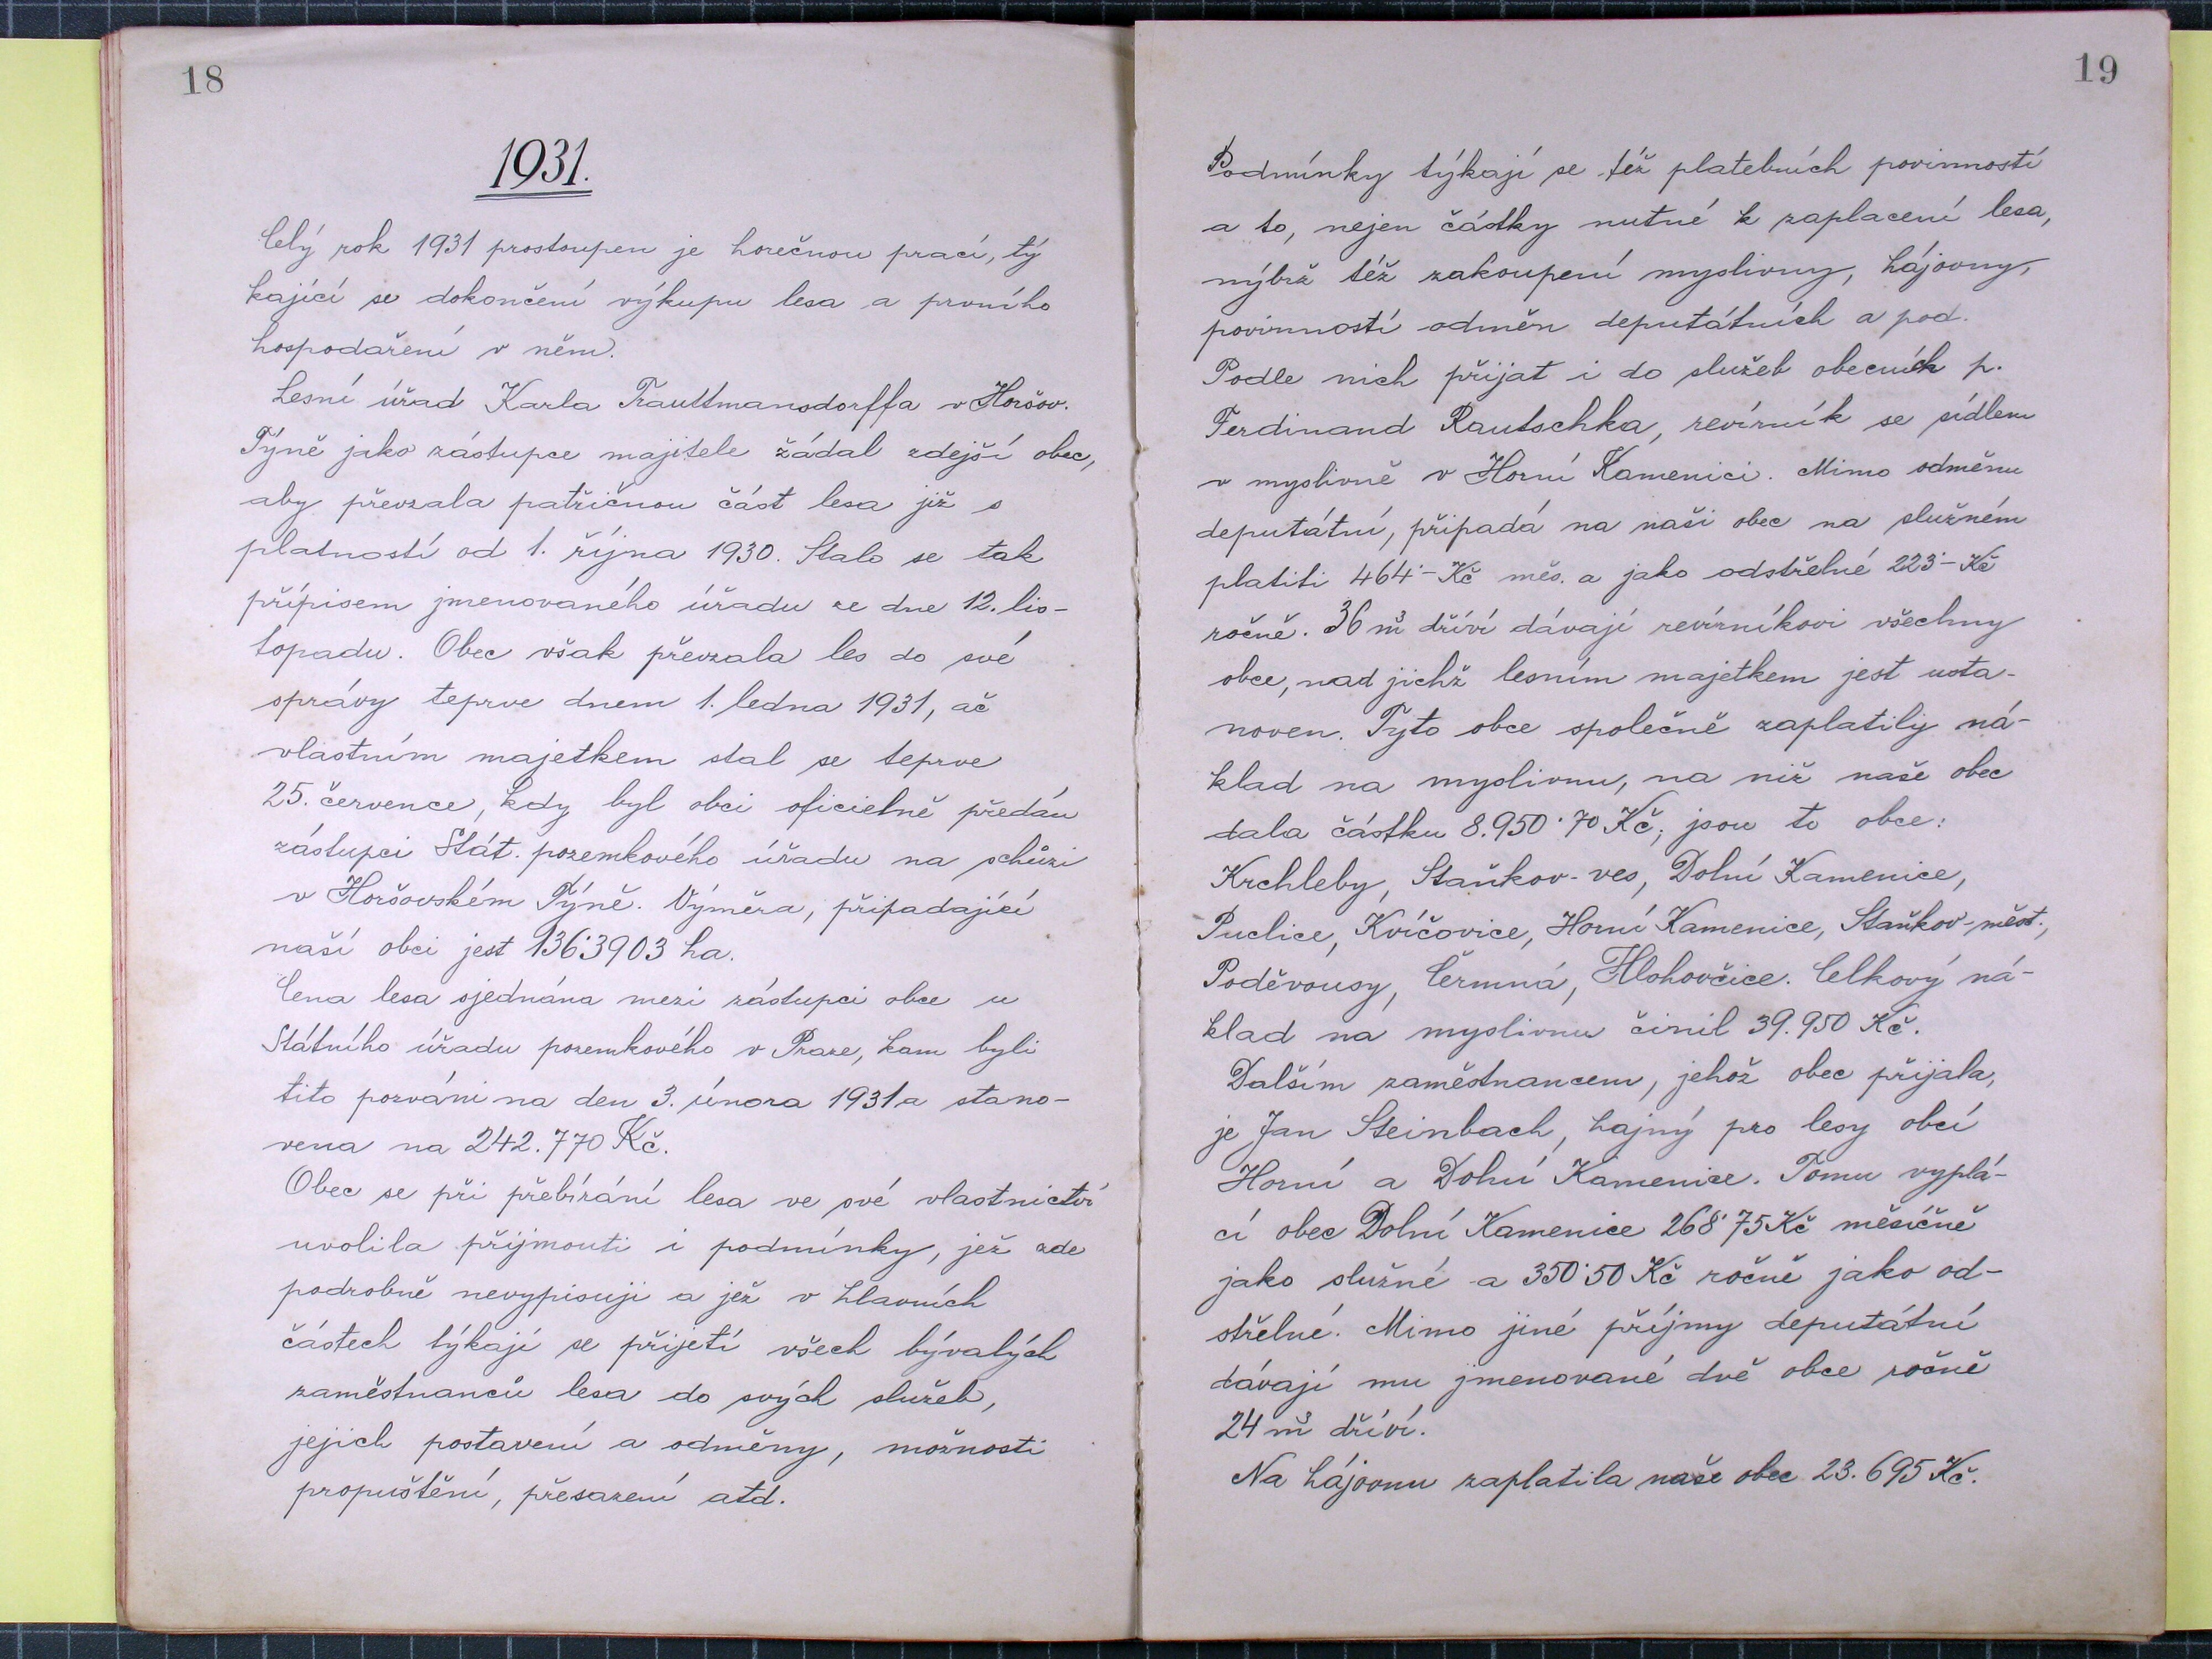 18
1931.
Celý rok 1931 prostoupen je horečnou prací, tý
kající se dokončení výkupu lesa a prvního
hospodaření v něm.
Lesní úřad Karla Trauttmansdorffa v Horšov.
Týně jako zástupce majitele žádal zdejší obec,
aby převzala patřičnou část lesa již s
platností od 1. října 1930. Stalo se tak
přípisem jmenovaného úřadu ze dne 12. lis-
topadu. Obec však převzala les do své
správy teprve dnem 1. ledna 1931, ač
vlastním majetkem stal se teprve
25. července, kdy byl obci oficielně předán
zástupci Stát. pozemkového úřadu na schůzi
v Horšovském Týně. Výměra, připadající
naší obci jest 136·3903 ha.
Cena lesa sjednána mezi zástupci obce u
Státního úřadu pozemkového v Praze, kam byli
tito pozváni na den 3. února 1931 a stano-
vena na 242.770 Kč.
Obec se při přebírání lesa ve své vlastnictví
uvolila přijmouti i podmínky, jež zde
podrobně nevypisuji a jež v hlavních
částech týkají se přijetí všech bývalých
zaměstnanců lesa do svých služeb,
jejich postavení a odměny, možnosti
propuštění, přesazení atd.
19
Podmínky týkají se též platebních povinností
a to, nejen částky nutné k zaplacení lesa,
nýbrž též zakoupení myslivny, hájovny,
povinností odměn deputátních a pod.
Podle nich přijat i do služeb obecních p.
Ferdinand Rautschka, revírník se sídlem
v myslivně v Horní Kamenici. Mimo odměnu
deputátní, připadá na naši obec na služném
platiti 464·- Kč měs. a jako odstřelné 223·- Kč
ročně. 36 m³ dříví dávají revírníkovi všechny
obce, nad jichž lesním majetkem jest usta-
noven. Tyto obce společně zaplatily ná-
klad na myslivnu, na niž naše obec
dala částku 8.950·70 Kč; jsou to obce:
Krchleby, Staňkov-ves, Dolní Kamenice,
Puclice, Kvíčovice, Horní Kamenice, Staňkov-měst.,
Poděvousy, Čermná, Hlohovčice. Celkový ná-
klad na myslivnu činil 39.950 Kč.
Dalším zaměstnancem, jehož obec přijala,
je Jan Steinbach, hajný pro lesy obcí
Horní a Dolní Kamenice. Tomu vyplá-
cí obec Dolní Kamenice 268·75 Kč měsíčně
jako služné a 350·50 Kč ročně jako od-
střelné. Mimo jiné příjmy deputátní
dávají mu jmenované dvě obce ročně
24 m³ dříví.
Na hájovnu zaplatila naše obec 23.695 Kč.